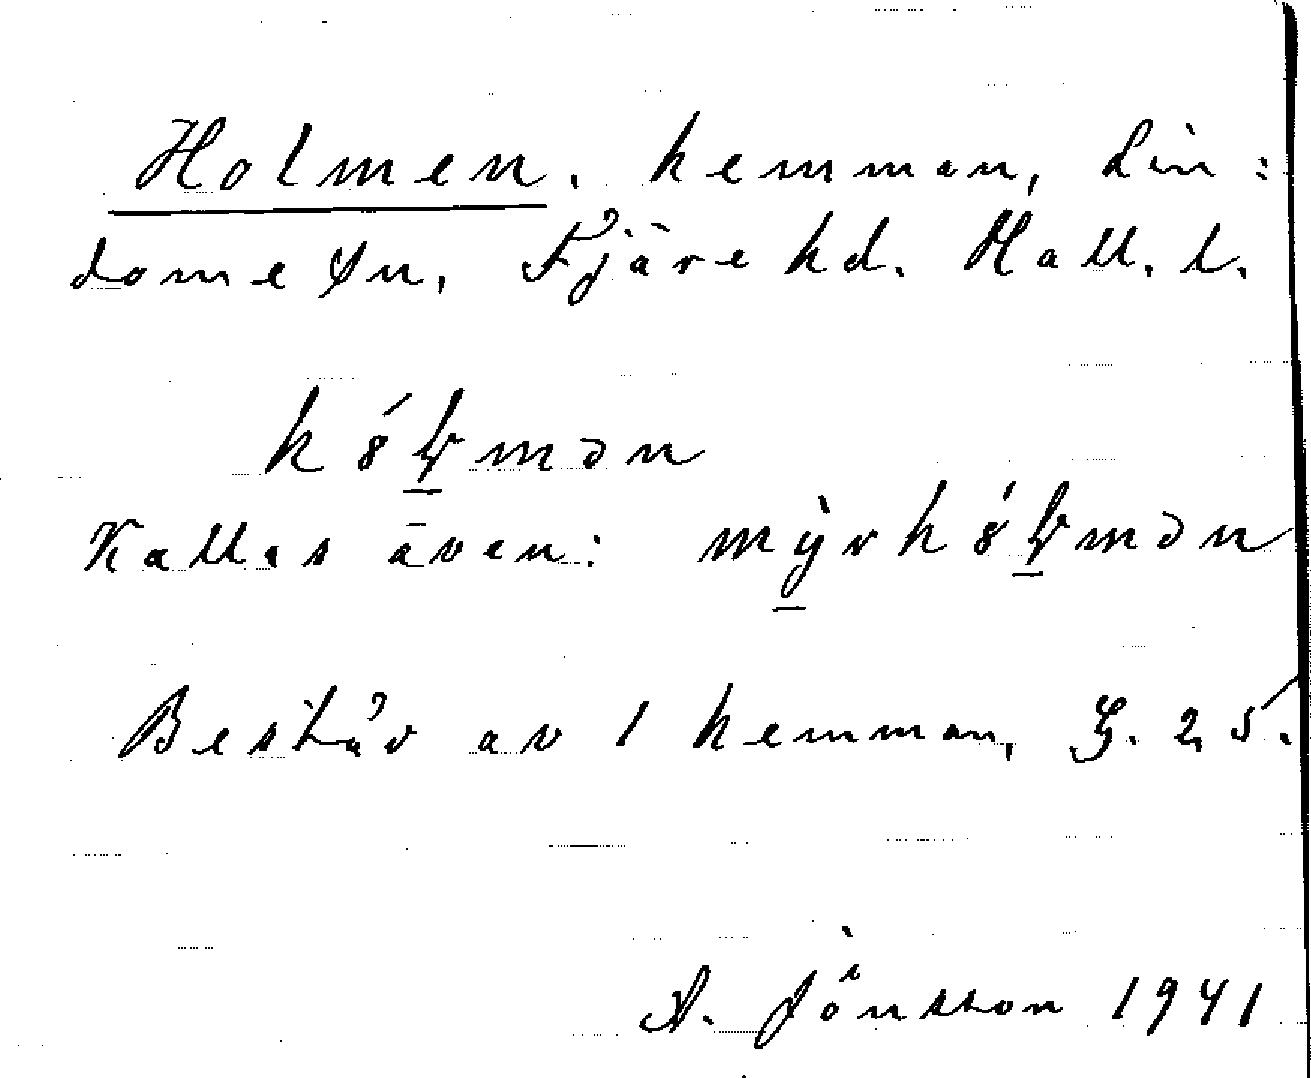 Holmen. hemman, Lin:
dome sn, Fjäre hd. Hall. l.
Kallas även:
Består av 1 hemman, G. 25.
A. Jönsson 1941